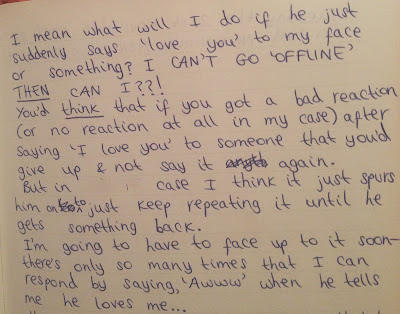 I mean what will I do if he just
suddenly says 'love you' to my face
or something? I CAN'T GO 'OFFLINE'
THEN CAN I??!
You'd think that if you got a bad reaction
(or no reaction at all in my case) after
saying 'I love you' to someone that you'd
give up & not say it again.
But in case I think it just spurs
him on to just keep repeating it until he
gets something back.
I'm going to have to face up to it soon-
there's only so many times that I can
respond by saying, 'Awww' when he tells
me he loves me...